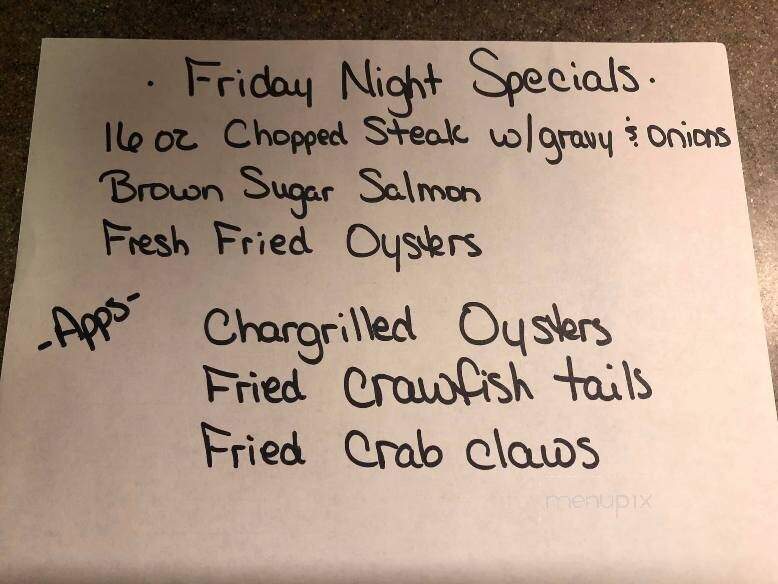 · Friday Night Specials ·
16 oz Chopped Steak w/gravy & onions
Brown Sugar Salmon
Fresh Fried Oysters
-Apps- Chargrilled Oysters
Fried Crawfish tails
Fried Crab claws
menupix